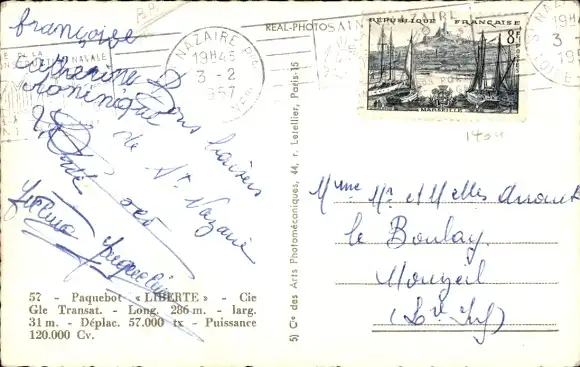 françoise
Catherine
Monique
Bons baisers
de St Nazaire
Jacqueline
57 - Paquebot « LIBERTE » - Cie
Gle Transat. - Long. 286 m. - larg.
31 m. - Déplac. 57.000 tx - Puissance
120.000 Cv.
REAL-PHOTO
5) Cie des Arts Photomécaniques, 44, r. Letellier, Paris-15
NAVALE
ST NAZAIRE
19H45
3 - 2
1957
REPUBLIQUE FRANÇAISE
8F
POSTES
MARSEILLE
Mme Mr et Melles
Le Boulay
Mouzeil